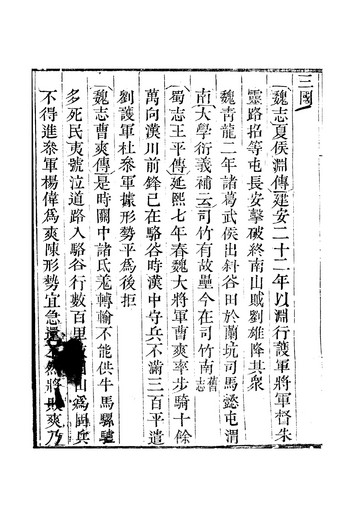 三國
魏志夏侯淵傳建安二十二年以淵行護軍將軍督朱
靈路招等屯長安擊破終南山賊劉雄降其衆
魏青龍二年諸葛武侯出斜谷田於蘭坑司馬懿屯渭
南大學衍義補云司竹有故壘今在司竹南舊志
蜀志王平傳延熙七年春魏大將軍曹爽率步騎十餘
萬向漢川前鋒已在駱谷時漢中守兵不滿三百平遣
劉護軍杜參軍據形勢平爲後拒
魏志曹爽傳是時關中諸氐羗轉輸不能供牛馬騾驢
多死民夷號泣道路入駱谷行數百里山爲固兵
不得進叅軍楊偉爲爽陳形勢宜急還不然將敗爽乃